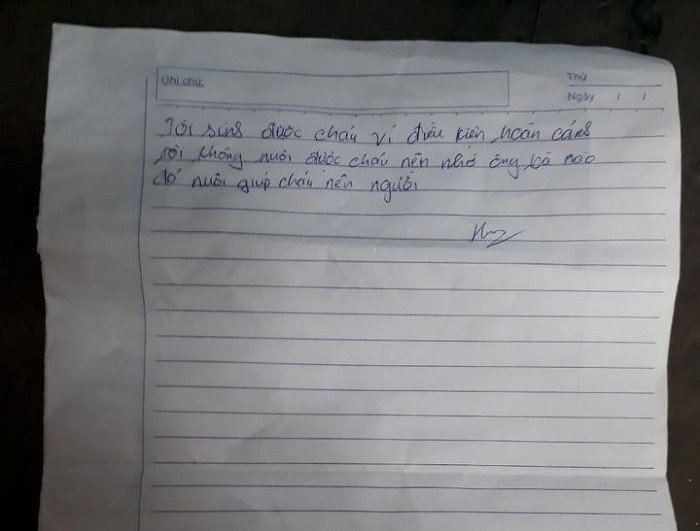 Ghi chú:
Thứ
Ngày / /
Tôi sinh được cháu vì điều kiện hoàn cảnh
tôi không nuôi được cháu nên nhờ ông bà nào
đó nuôi giúp cháu nên người